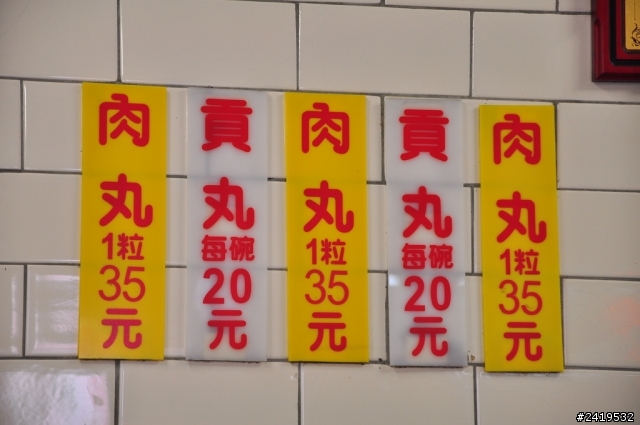 肉丸1粒35元
貢丸每碗20元
肉丸1粒35元
貢丸每碗20元
肉丸1粒35元
#2419532